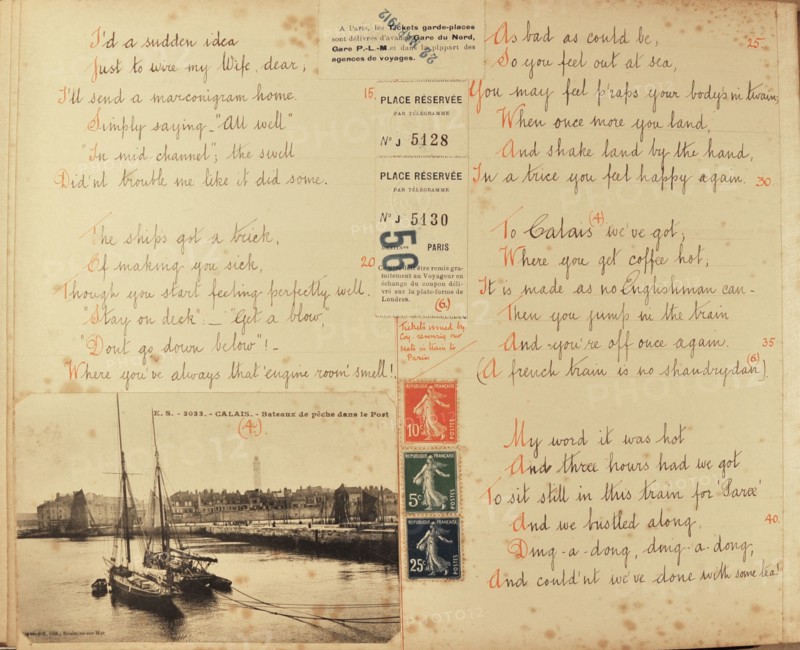 I'd a sudden idea
Just to wire my Wife, dear;
I'll send a marconigram home.
15.
Simply saying "All well"
"In mid channel"; the swell
Did'nt trouble me like it did some.
The ships got a trick,
Of making you sick,
20
Though you start feeling perfectly well.
"Stay on deck":- "Get a blow,"
"Dont go down below"!-
Where you've always that 'engine room' smell!
E. S. - 3033. - CALAIS. - Bateaux de pêche dans le Port
(4.)
A Paris, les Tickets garde-places
sont délivrés d'avance
Gare du Nord,
Gare P.-L.-M. et dans la plupart des
agences de voyages.
1912
PLACE RÉSERVÉE
PAR TÉLÉGRAMME
N° J 5128
PLACE RÉSERVÉE
PAR TÉLÉGRAMME
N° J 5130
56
PARIS
être remis gra-
tuitement au Voyageur en
échange du coupon déli-
vré sur la plate-forme de
Londres.
(6.)
Tickets issued by
Coy. reserving our
seats in train to
Paris
RÉPUBLIQUE FRANÇAISE
10c
POSTES
RÉPUBLIQUE FRANÇAISE
5c
POSTES
RÉPUBLIQUE FRANÇAISE
25c
POSTES
As bad as could be,
25
So you feel out at sea,
You may feel p'raps your body's in twain;
When once more you land,
And shake land by the hand,
In a trice you feel happy again.
30
To Calais (4) we've got;
Where you get coffee hot;
It is made as no Englishman can-
Then you jump in the train
And you're off once again.
35
(A french train is no shandrydan).
(6)
My word it was hot
And three hours had we got
To sit still in this train for 'Paree'
And we bustled along,
40.
Ding-a-dong, ding-a-dong,
And could'nt we've done with some tea!
PHOTO12